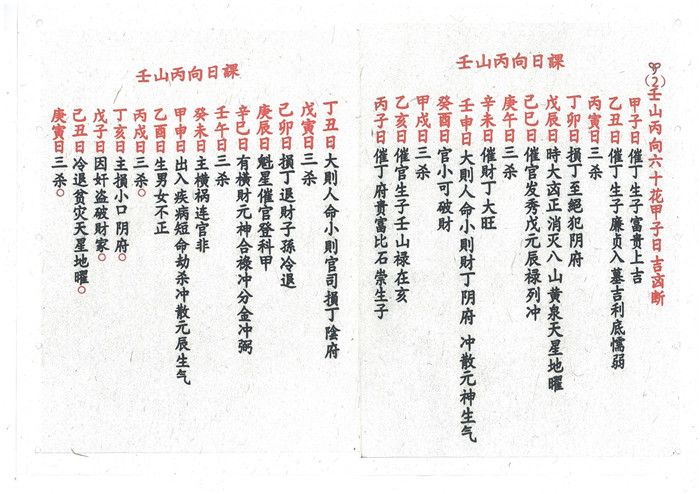 (2)壬山丙向六十花甲子日吉凶断
壬山丙向日課
甲子日催丁生子富贵上吉
乙丑日催丁生子廉贞入墓吉利底懦弱
丙寅日三杀
丁卯日損丁至絕犯阴府
戊辰日時大凶正消灭八山黄泉天星地曜
己巳日催官发秀戊元辰禄列冲
庚午日三杀
辛未日催财丁大旺
壬申日大則人命小則财丁阴府 冲散元神生气
癸酉日官小可破财
甲戌日三杀
乙亥日催官生子壬山禄在亥
丙子日催丁府貴富比石崇生子
壬山丙向日課
丁丑日大則人命小則官司損丁陰府
戊寅日三杀
己卯日損丁退财子孫冷退
庚辰日魁星催官登科甲
辛巳日有橫財元神合祿冲分金冲弼
壬午日三杀
癸未日主橫禍连官非
甲申日出入疾病短命劫杀冲散元辰生气
乙酉日生男女不正
丙戌日三杀。
丁亥日主損小口阴府。
戊子日因奸盗破财家。
己丑日冷退贫灾天星地曜。
庚寅日三杀。